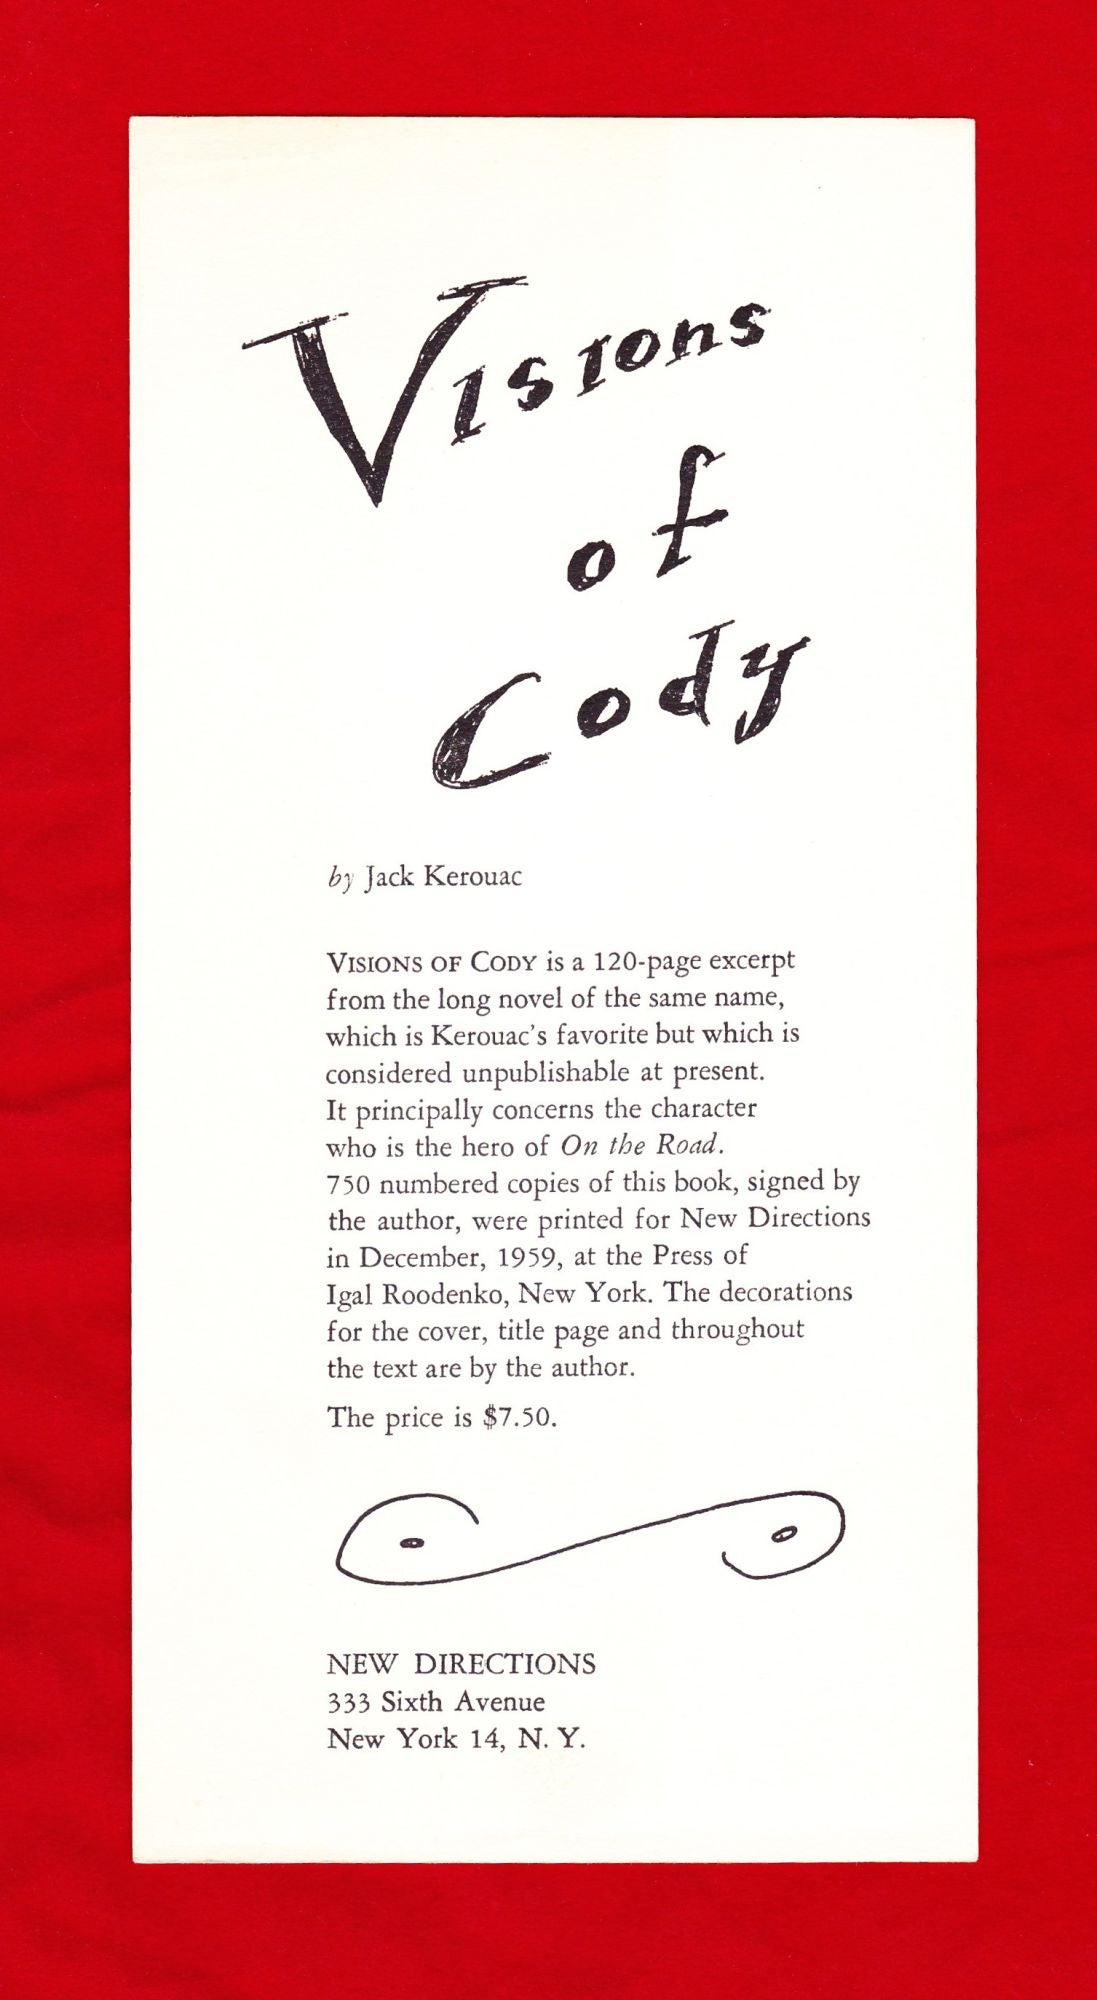 Visions
of
Cody
by Jack Kerouac
VISIONS OF CODY is a 120-page excerpt
from the long novel of the same name,
which is Kerouac's favorite but which is
considered unpublishable at present.
It principally concerns the character
who is the hero of On the Road.
750 numbered copies of this book, signed by
the author, were printed for New Directions
in December, 1959, at the Press of
Igal Roodenko, New York. The decorations
for the cover, title page and throughout
the text are by the author.
The price is $7.50.
NEW DIRECTIONS
333 Sixth Avenue
New York 14, N. Y.